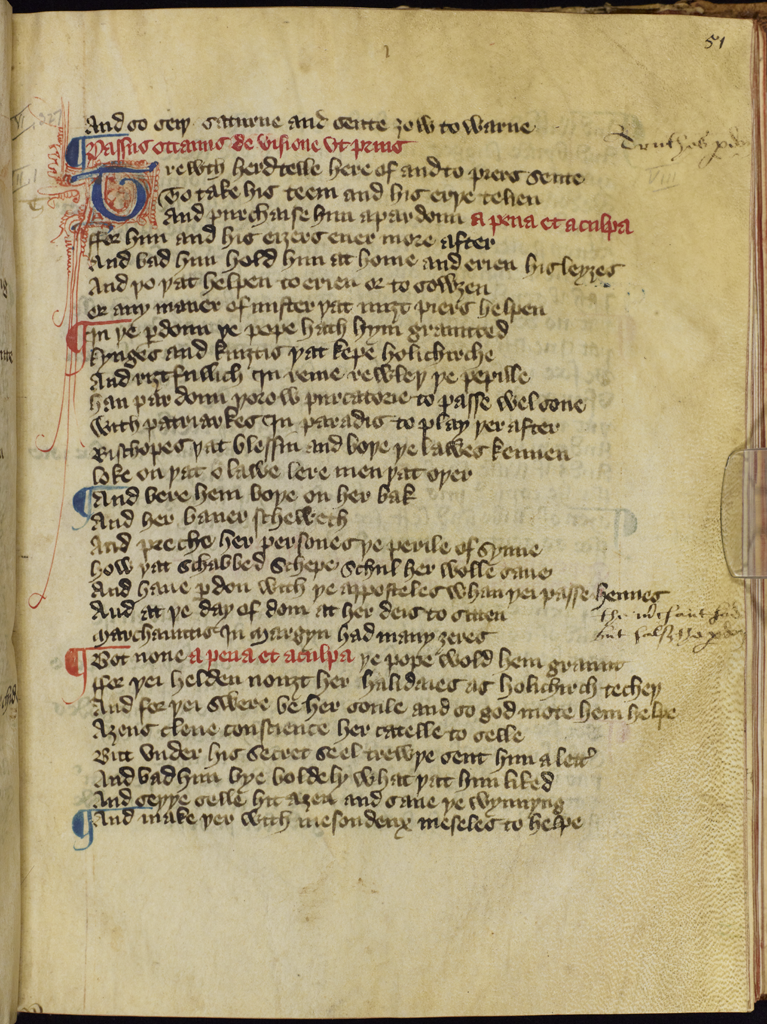 51
And so seiþ saturne and sente ȝow to warne
Passus octauus de visione vt prius
Trewth herd telle here of and to piers sente
To take his teem and his erþe telien
And purchasse him a pardoun a pena et a culpa
ffor him and his eizers euer more after
And bad him hold him at home and erien his leyȝes
And yo yat helpen to erien or to sowȝen
or any maner of mister yat miȝt piers helpen
In ye pdoun ye pope hath hym graunted
kynges and kniȝtis yat kepe holichirche
And riȝtfullich in reme rewley ye pepille
han pardoun yorow purcatorie to passe wel sone
with patriarkes In paradis to play yer after
Bischopes yat blessin and boye ye lawes kennen
loke on yat o lawe lere men yat oyer
And bere hem boye on her bak
And her baner scheweth
And preche her persones ye perile of synne
how yat schabbed schepe schul her wolle saue
And haue pdon with ye apposteles whan yei passe hennes
And at ye day of dom at her deis to sitten
Marchauntis In margyn had many ȝeres
Bot none a pena et a culpa ye pope wold hem graunt
ffor yei helden nouȝt her halidaies as holichirch techey
And for yei swere be her soule and so god mote hem helpe
Aȝens clene conscience her catelle to selle
Bitt vnder his secret seel trewye sent him a lettr
And bad him bye boldely what yat him liked
And seyye selle hit aȝen and saue ye wynnyng
And make yer with mesondeux meseles to helpe